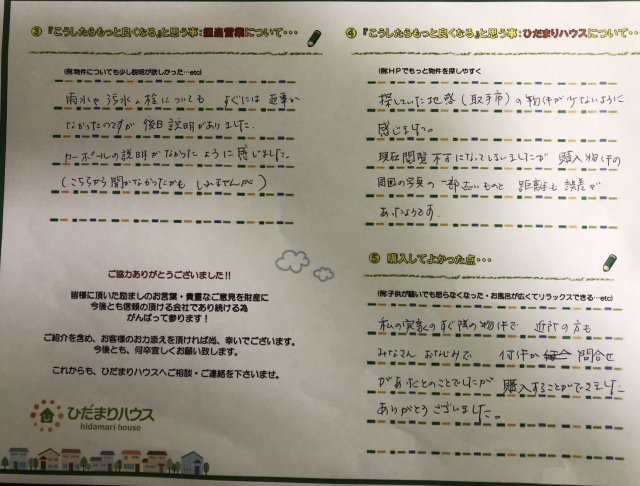 ③『こうしたらもっと良くなる』と思う事：担当営業について・・・
(例:物件についても少し説明が欲しかった…etc)
雨水や汚水の栓についても すぐには 返事が
なかったのですが 後日説明がありました。
カーポールの説明がなかったように感じました。
(こちらから聞かなかったかも しれませんが)
ご協力ありがとうございました!!
皆様に頂いた励ましのお言葉・貴重なご意見を財産に
今後とも信頼の頂ける会社であり続ける為
がんばって参ります！
ご紹介を含め、お客様のお力添えを頂ければ尚、幸いでございます。
今後とも、何卒宜しくお願い致します。
これからも、ひだまりハウスへご相談・ご連絡を下さいませ。
ひだまりハウス
hidamari house
④『こうしたらもっと良くなる』と思う事：ひだまりハウスについて・・
(例:HPでもっと物件を探しやすく
探していた地域(取手市)の物件が少ないように
感じました。
現在閲覧不可になってしまいましたが 購入物件の
周囲の写真の一部古いものと 距離も 誤差が
あったようです.
⑤ 購入してよかった点・・・
(例:子供が騒いでも怒らなくなった・お風呂が広くてリラックスできる…etc)
私の実家のすぐ隣の物件で 近所の方も
みなさん おなじみで. 何件か 問合せ
があったとのことでしたが 購入することができました
ありがとうございました。